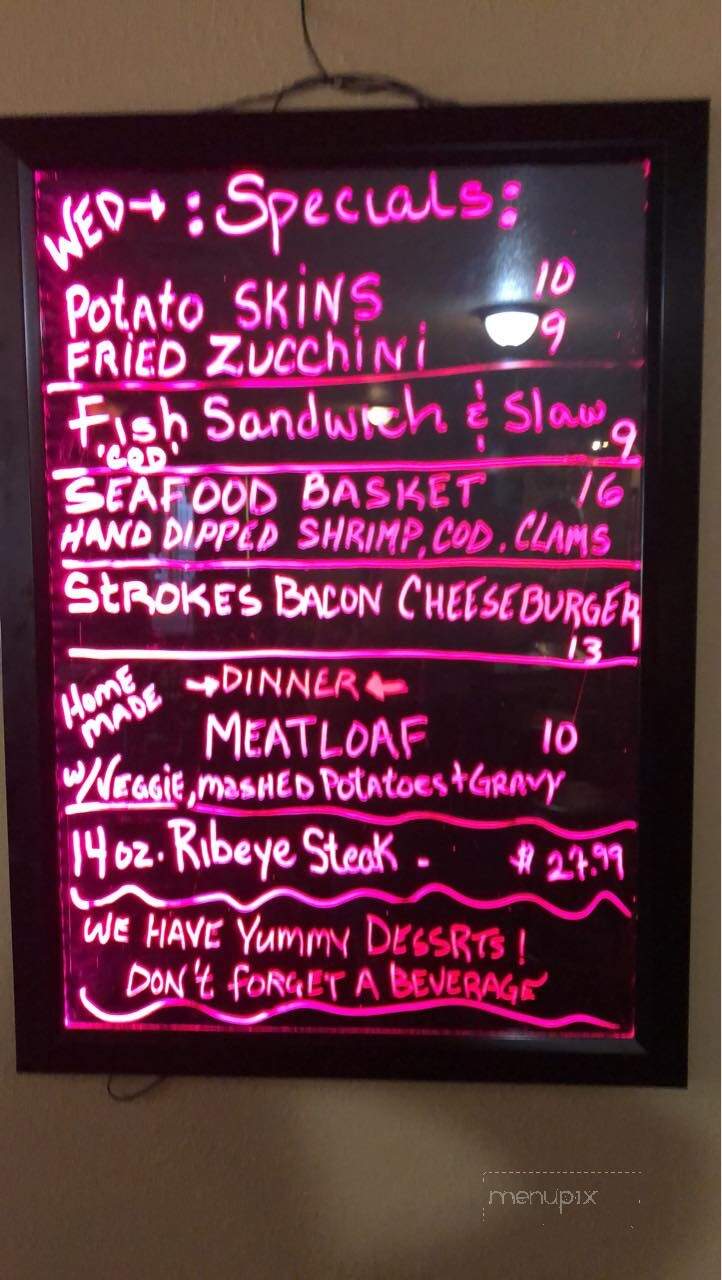 WED→ :Specials:
Potato SKiNS 10
FRiED ZUCChiNi 9
Fish Sandwich & Slaw 9
'COD'
SEAFOOD BASKET 16
HAND DIPPED SHRIMP, COD, CLAMS
StROKES BACON CHEESEBURGER
13
HOME MADE →DINNER←
MEATLOAF 10
w/VEGGIE, mASHED POtAtoes + GRAVY
14 oz. Ribeye Steak - $ 27.99
WE HAVE YummY DESSRTS!
DON't fORGET A BEVERAGE
menupix